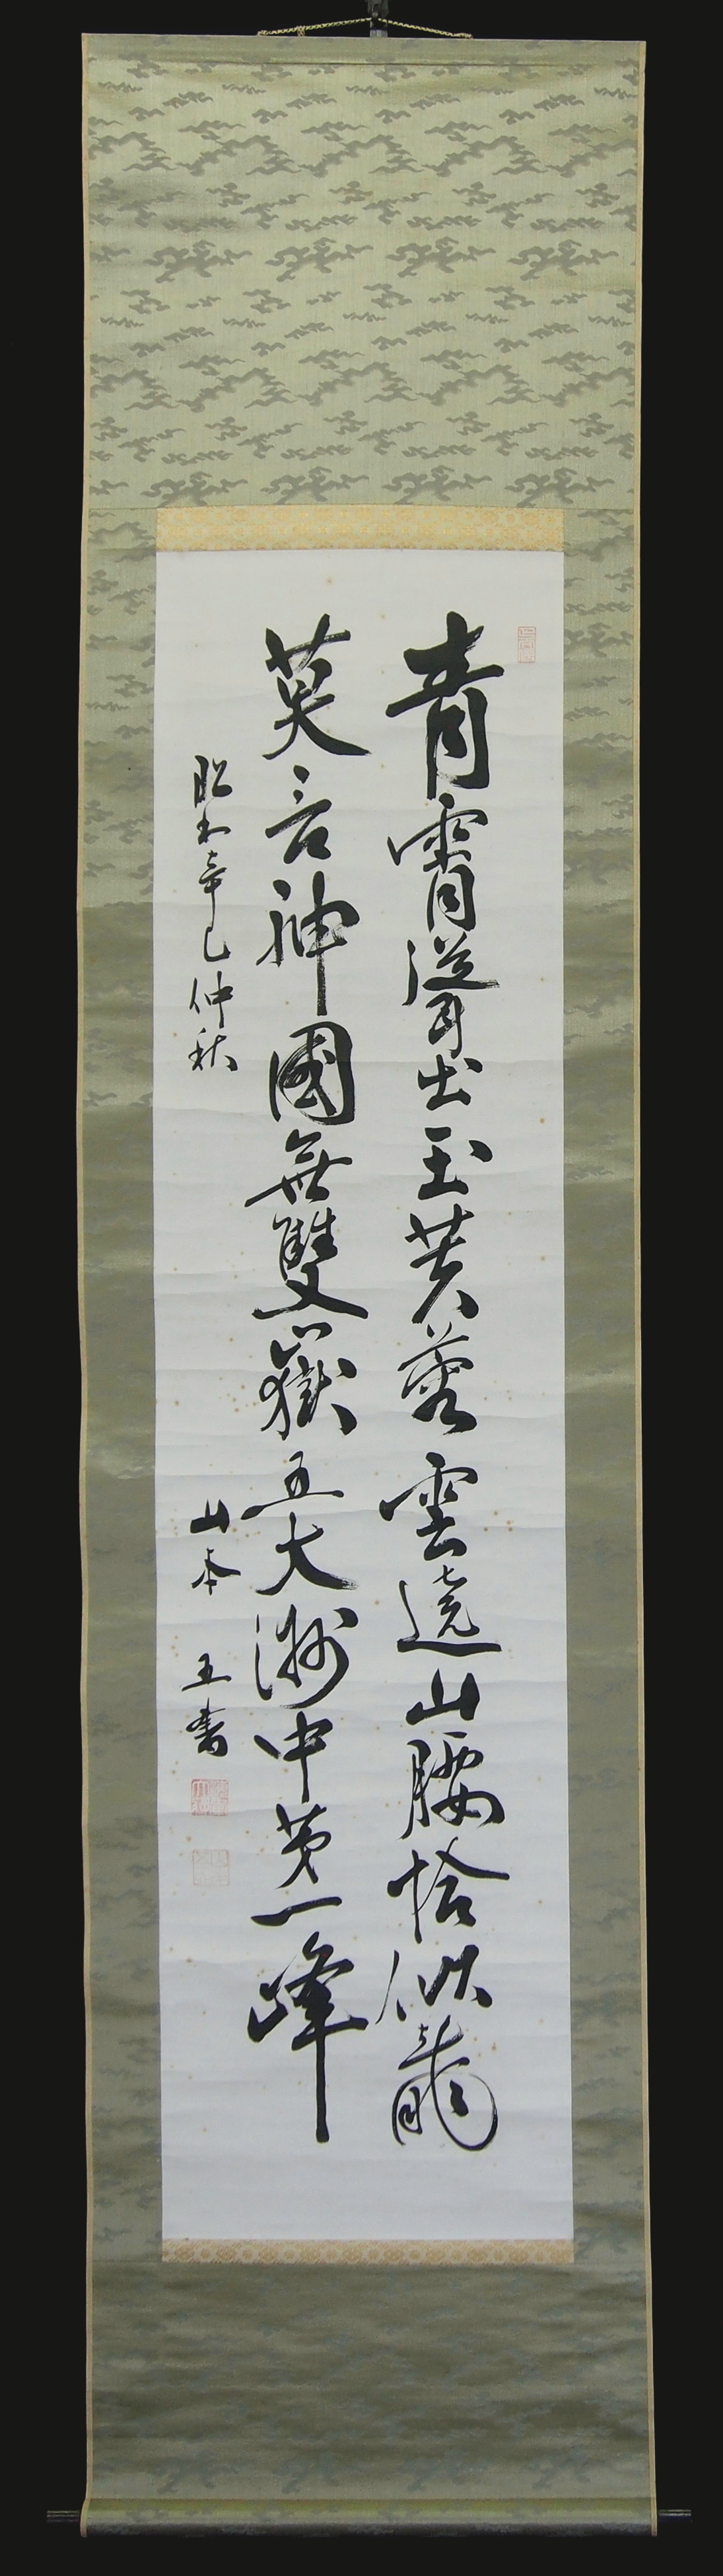 青霄聳出玉芙蓉雲遶山腰恰似龍
莫言神國無雙嶽五大洲中第一峰
昭和辛巳仲秋
山本 玉書